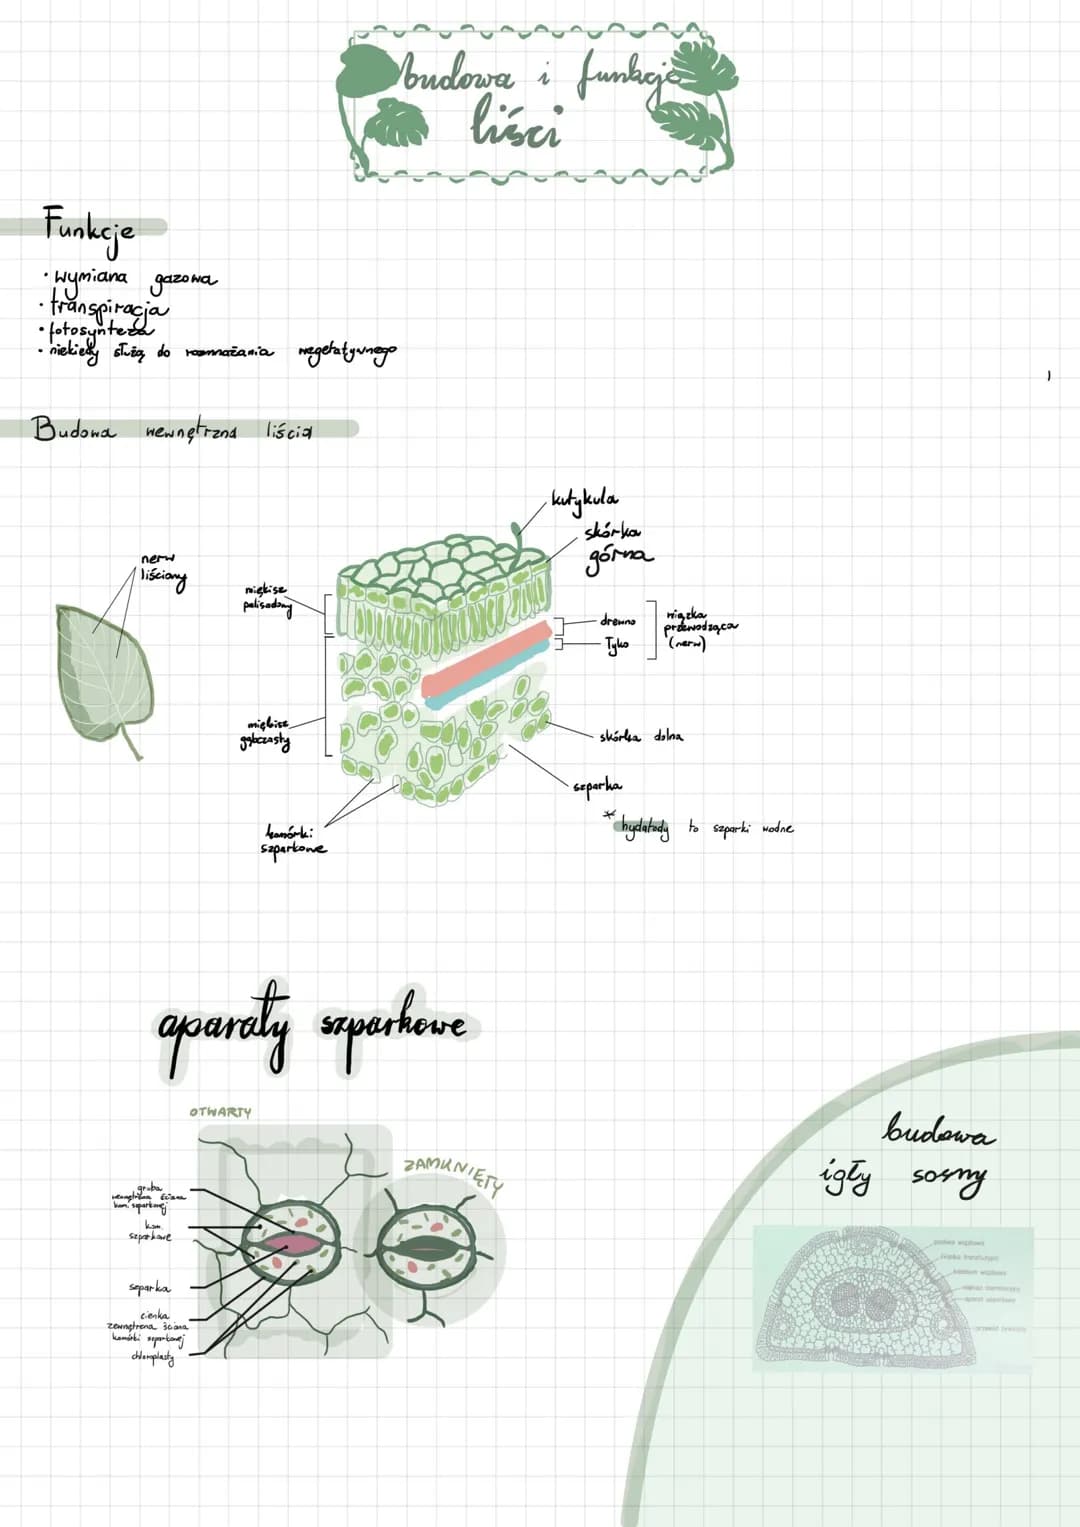 budowa i funkcje
liści
Funkcje
· wymiana gazowa
· transpiracja
· fotosynteza
· niekiedy służą do rozmnażania wegetatywnego
Budowa wewnętrzna liścia
nerw
liściowy
kutykula
skórka
górna
miękisz
palisadowy
drewno
łyko
wiązka
przewodząca
(nerw)
miękisz
gąbczasty
skórka dolna
szparka
* hydatody to szparki wodne
komórki
szparkowe
aparaty szparkowe
OTWARTY
ZAMKNIĘTY
gruba
wewnętrzna ściana
kom. szparkowej
kom.
szparkowe
szparka
cienka
zewnętrzna ściana
komórki szparkowej
chloroplasty
budowa
igły sosny